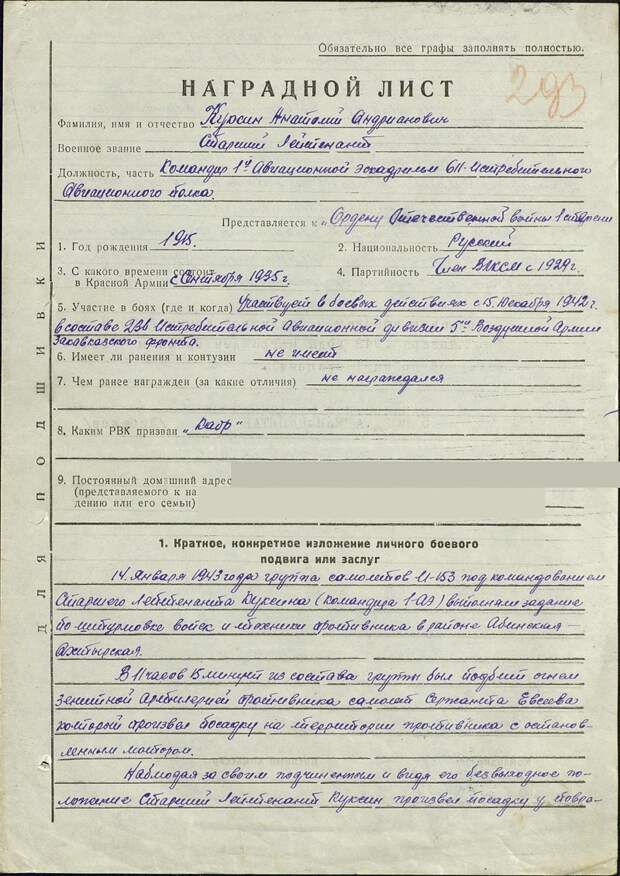 Обязательно все графы заполнять полностью.
НАГРАДНОЙ ЛИСТ
293
Фамилия, имя и отчество Куксин Анатолий Андрианович
Военное звание Старший Лейтенант
Должность, часть Командир 1й Авиационной эскадрильи 611-Истребительного
Авиационного полка.
Представляется к „Ордену Отечественной войны 1 степени
1. Год рождения 1915.
2. Национальность Русский
3. С какого времени состоит
в Красной Армии с Сентября 1935 г.
4. Партийность Член ВЛКСМ с 1929 г.
5. Участие в боях (где и когда) Участвует в боевых действиях с 15 Декабря 1942 г.
в составе 236 Истребительной Авиационной дивизии 5й Воздушной Армии
Закавказского фронта.
6. Имеет ли ранения и контузии не имеет
7. Чем ранее награжден (за какие отличия) не награждался
8. Каким РВК призван „Кадр"
9. Постоянный домашний адрес
(представляемого к на
дению или его семьи)
ДЛЯ ПОДШИВКИ
1. Краткое, конкретное изложение личного боевого
подвига или заслуг
14. Января 1943 года группа самолетов И-153 под командованием
Старшего Лейтенанта Куксина (Командира 1-АЭ) выполняя задание
по штурмовке войск и техники противника в районе Абинская –
Ахтырская.
В 11 часов 15 минут из состава группы был подбит огнем
зенитной Артилерией противника самолет Сержанта Евсеева
который произвел посадку на территории противника с останов-
ленным мотором.
Наблюдая за своим подчиненным и видя его безвыходное по-
ложение Старший Лейтенант Куксин произвел посадку у повре-